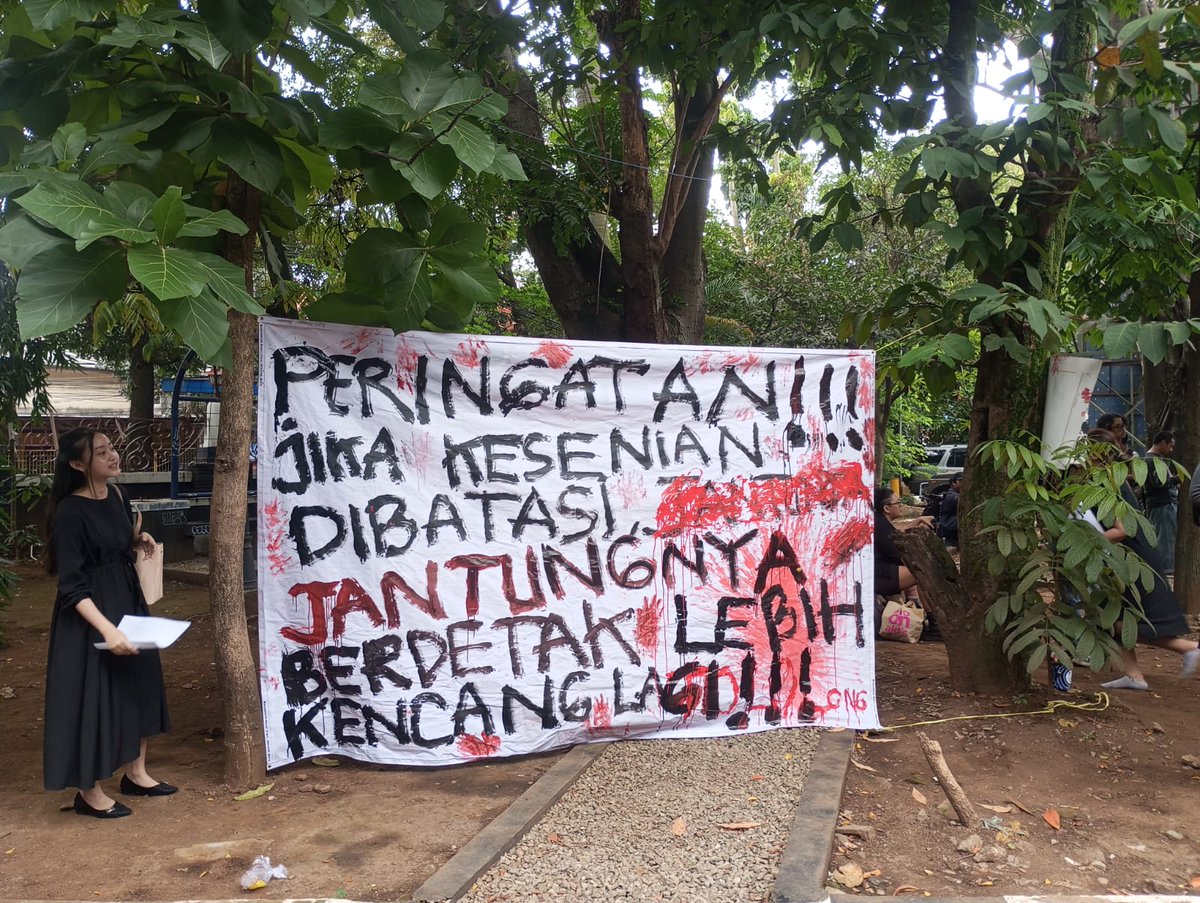 PERINGATAN!!!
jIKA KESENIAN
DIBATASI,
JANTUNGNYA
BERDETAK LEBIH
KENCANG LAGI!!!
ONG